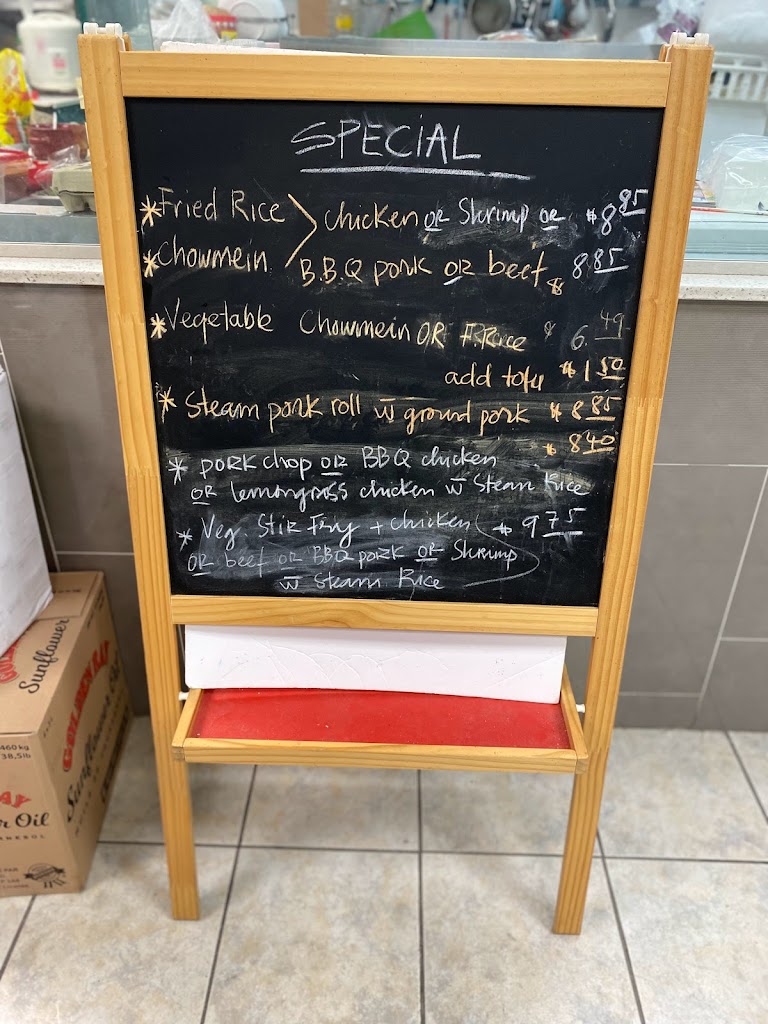 SPECIAL
*Fried Rice > chicken OR Shrimp OR $8 85
*Chowmein B.B.Q pork OR beef $ 8 85
*Vegetable Chowmein OR F.Rice $ 6.49
add tofu $1 50
* Steam pork roll w̄ ground pork $8 85
$840
* PORK chop OR BBQ chicken
OR lemongrass chicken w̄ Steam Rice
* Veg. Stir Fry + chicken $ 9 75
OR beef OR BBQ pork OR Shrimp
w̄ Steam Rice
Sunflower
GOLDEN RAY
Sunflower Oil
460kg
38,5lb
AY
r Oil